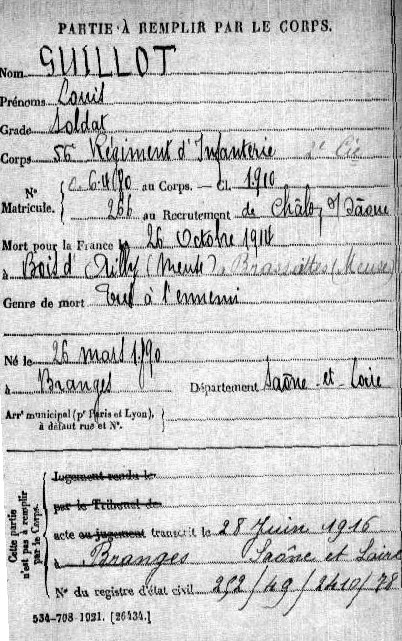 PARTIE À REMPLIR PAR LE CORPS.
Nom GUILLOT
Prénoms Louis
Grade Soldat
Corps 56 Régiment d'Infanterie 2e Cie
N° Matricule. au Corps. — Cl. 1910
266 au Recrutement de Châlon s/ Sâone
Mort pour la France le 26 Octobre 1914
à Bois d'Ailly (Meuse)
Genre de mort Tué à l'ennemi
Né le 26 mars 1890
à Branges Département Saône-et-Loire
Arrt municipal (pr Paris et Lyon),
à défaut rue et N°.
Cette partie n'est pas à remplir par le Corps.
Jugement rendu le
par le Tribunal de
acte ou jugement transcrit le 28 Juin 1916
à Branges Saône et Loire
N° du registre d'état civil 252/49/2410/78
534-708-1921. [26434.]